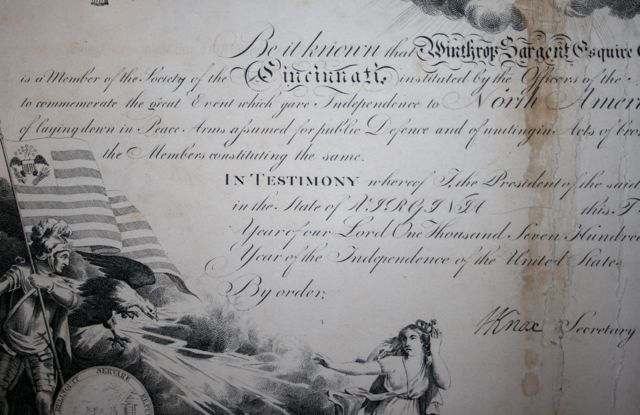 Be it known that Winthrop Sargent Esquire
is a Member of the Society of the Cincinnati, instituted by the Officers of the
to commemorate the great Event which gave Independence to North Amer
of laying down in Peace Arms assumed for public Defence and of uniting in Acts of
the Members constituting the same.
IN TESTIMONY whereof I, the President of the said
in the State of VIRGINIA this
Year of our Lord One Thousand Seven Hundred
Year of the Independence of the United States
By order,
HKnox Secretary
SERVARE